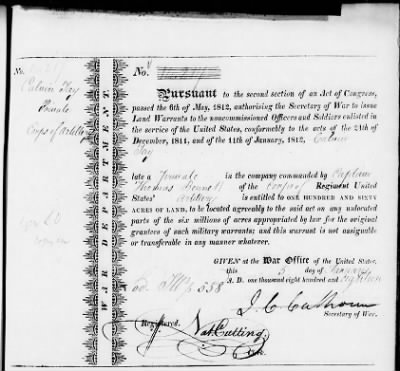 No.
Calvin Fay
Private
Corps of Artillery
WAR DEPARTMENT.
No.
Pursuant to the second section of an Act of Congress,
passed the 6th of May, 1812, authorising the Secretary of War to issue
Land Warrants to the noncommissioned Officers and Soldiers enlisted in
the service of the United States, conformably to the acts of the 24th of
December, 1811, and of the 11th of January, 1812, Calvin
Fay
late a Private in the company commanded by Captain
Thomas Bennett of the Corps of Regiment United
States' Artillery is entitled to ONE HUNDRED AND SIXTY
ACRES OF LAND, to be located agreeably to the said act on any unlocated
parts of the six millions of acres appropriated by law for the original
grantees of such military warrants; and this warrant is not assignable
or transferable in any manner whatever.
GIVEN at the War Office of the United States,
this 5 day of January
A. D. one thousand eight hundred and eighteen
J. C. Calhoun
Secretary of War.
Registered.
Nat. Cutting
Clk.